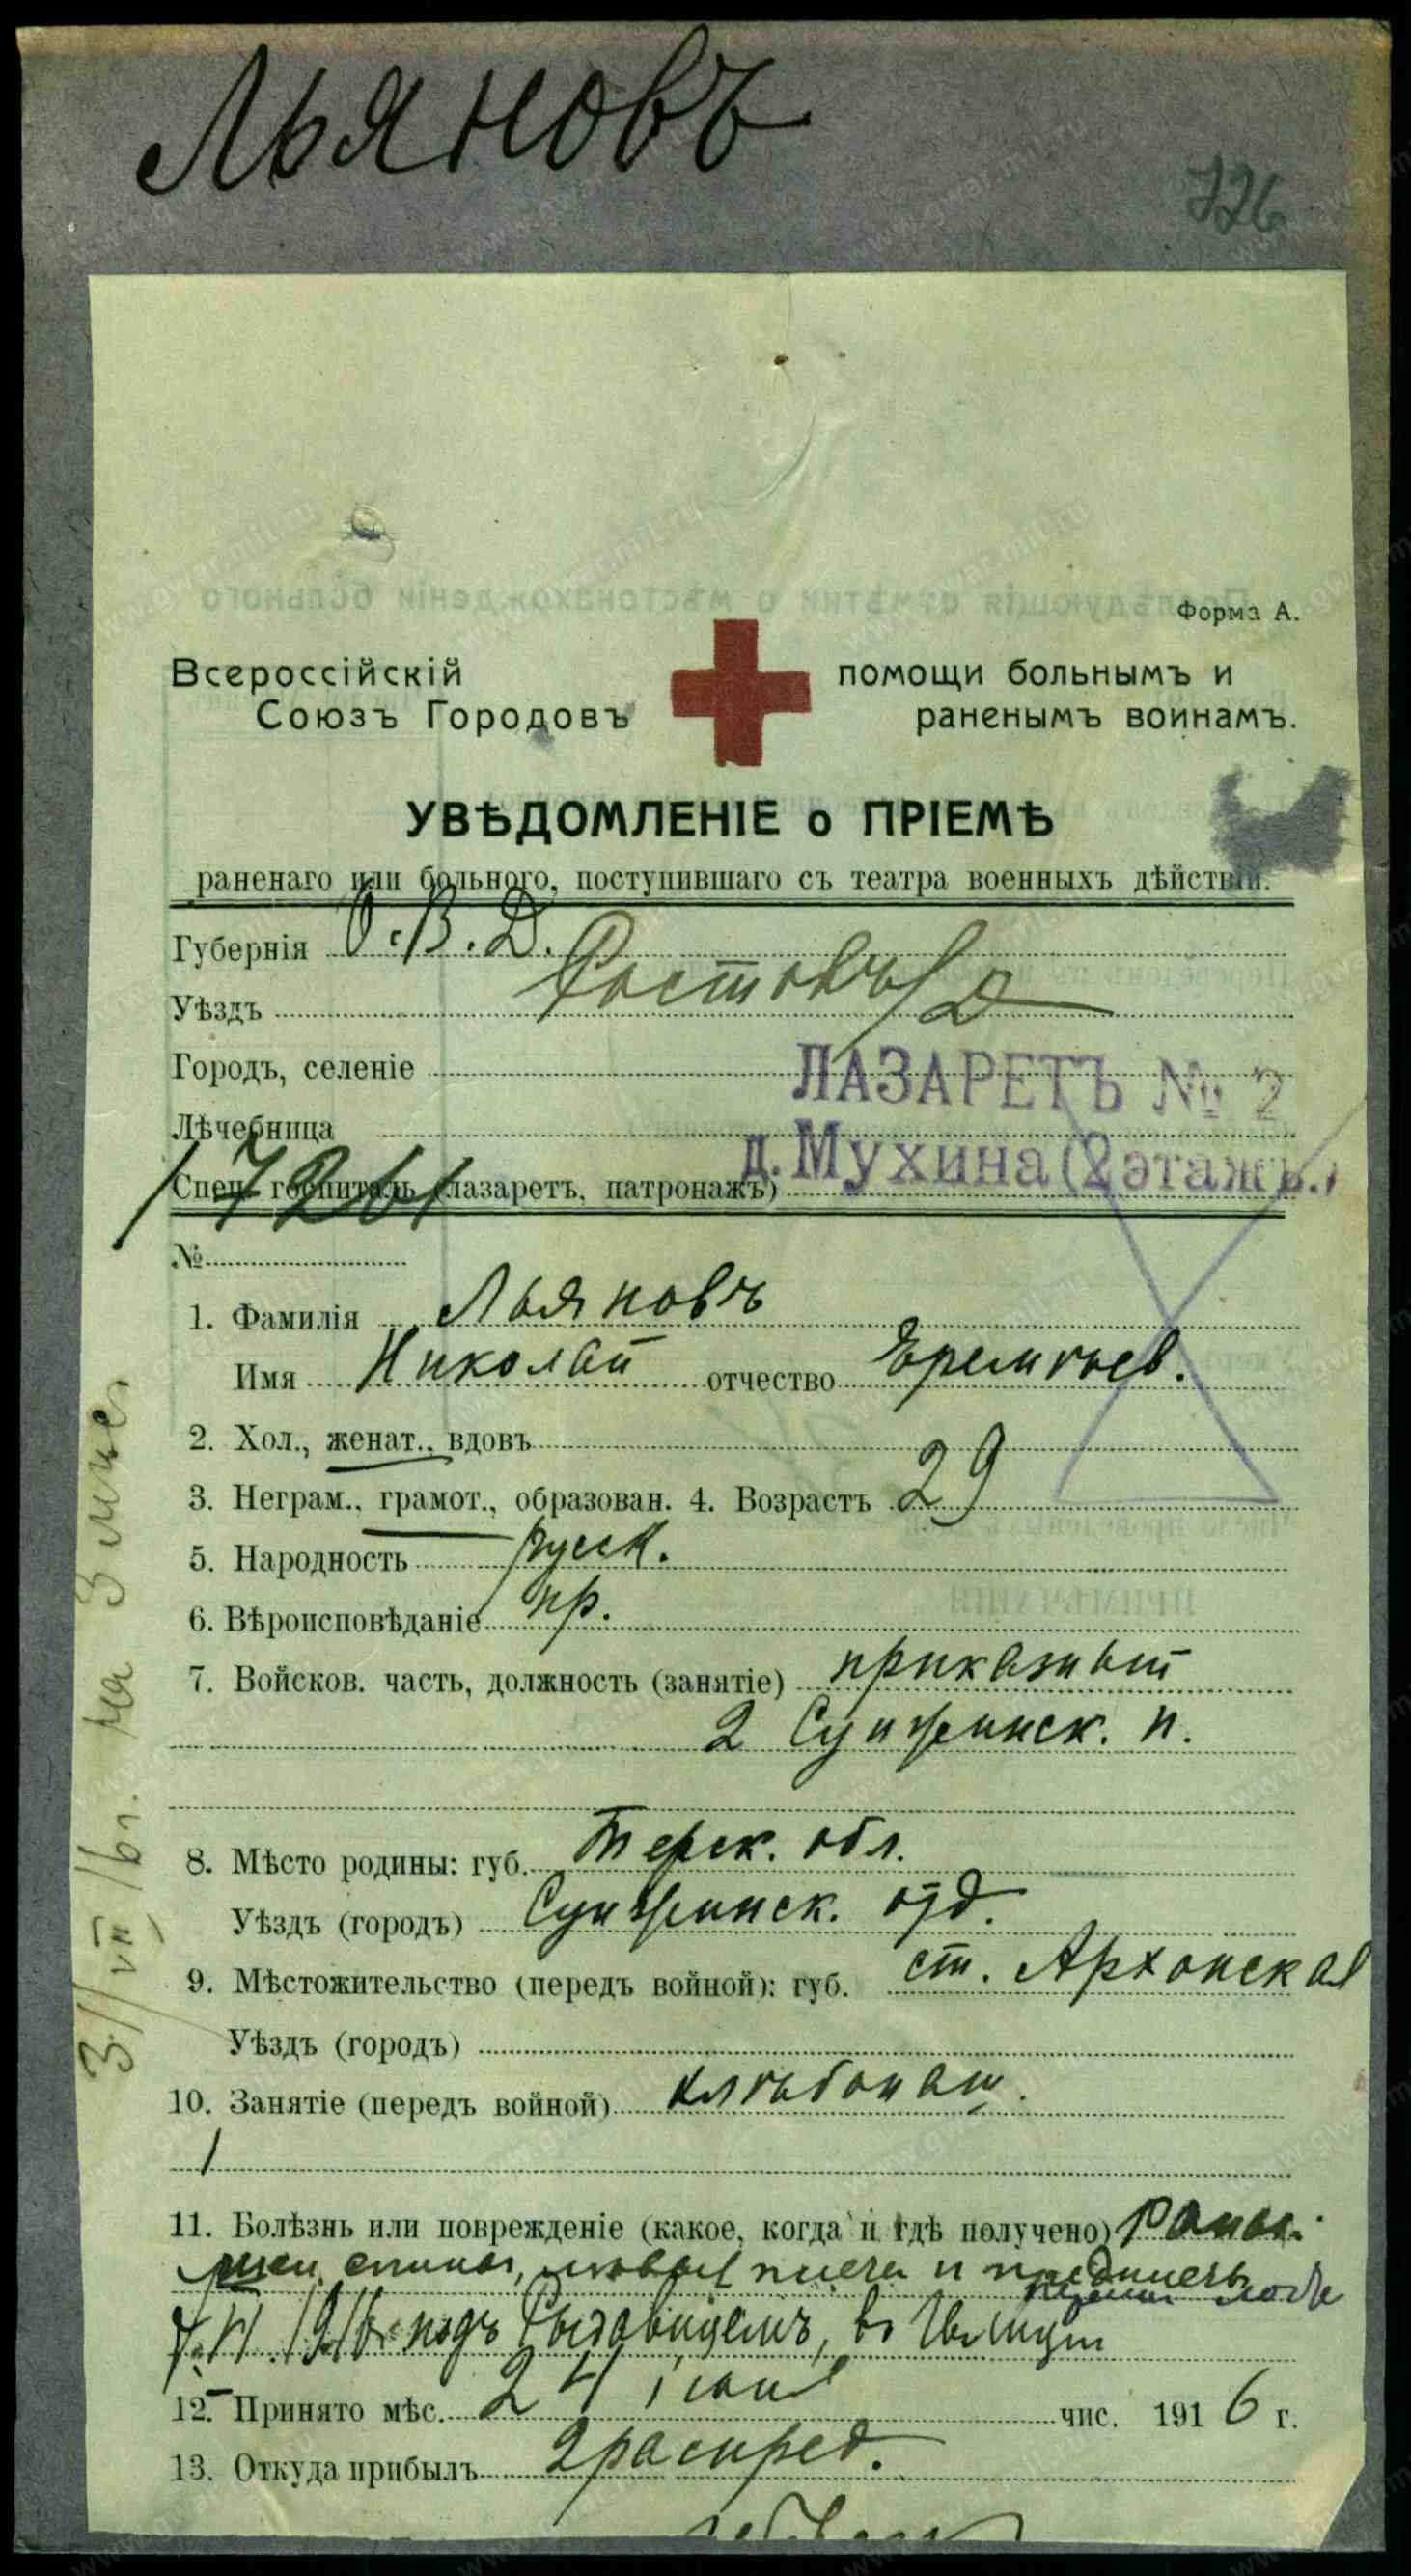 Льяновъ
726
Форма А.
Всероссійскій
Союзъ Городовъ
помощи больнымъ и
раненымъ воинамъ.
УВѢДОМЛЕНІЕ о ПРІЕМѢ
раненаго или больного, поступившаго съ театра военныхъ дѣйствій.
Губернія О.В.Д.
Уѣздъ Ростовъ/Д
Городъ, селеніе
ЛАЗАРЕТЪ № 2
Лѣчебница
д. Мухина (2 этажъ.)
Спец. госпиталь (лазаретъ, патронажъ)
1726
№
1. Фамилія Льяновъ
Имя Николай отчество Еремѣев.
2. Хол., женат., вдовъ
3. Неграм., грамот., образован. 4. Возрастъ 29
5. Народность русск.
6. Вѣроисповѣданіе пр.
7. Войсков. часть, должность (занятіе) приказный
2 Сунженск. п.
8. Мѣсто родины: губ. Терск. обл.
Уѣздъ (городъ) Сунженск. отд.
9. Мѣстожительство (передъ войной): губ. ст. Архонская
Уѣздъ (городъ)
10. Занятіе (передъ войной) хлѣбопаш.
11. Болѣзнь или поврежденіе (какое, когда и гдѣ получено) раны
шеи, спины, плеча и предплечья
1916 подъ въ Галиціи
12. Принято мѣс. 24 іюня чис. 1916 г.
13. Откуда прибылъ 2 распред.
3/VII 16 г. на 3 мѣс.